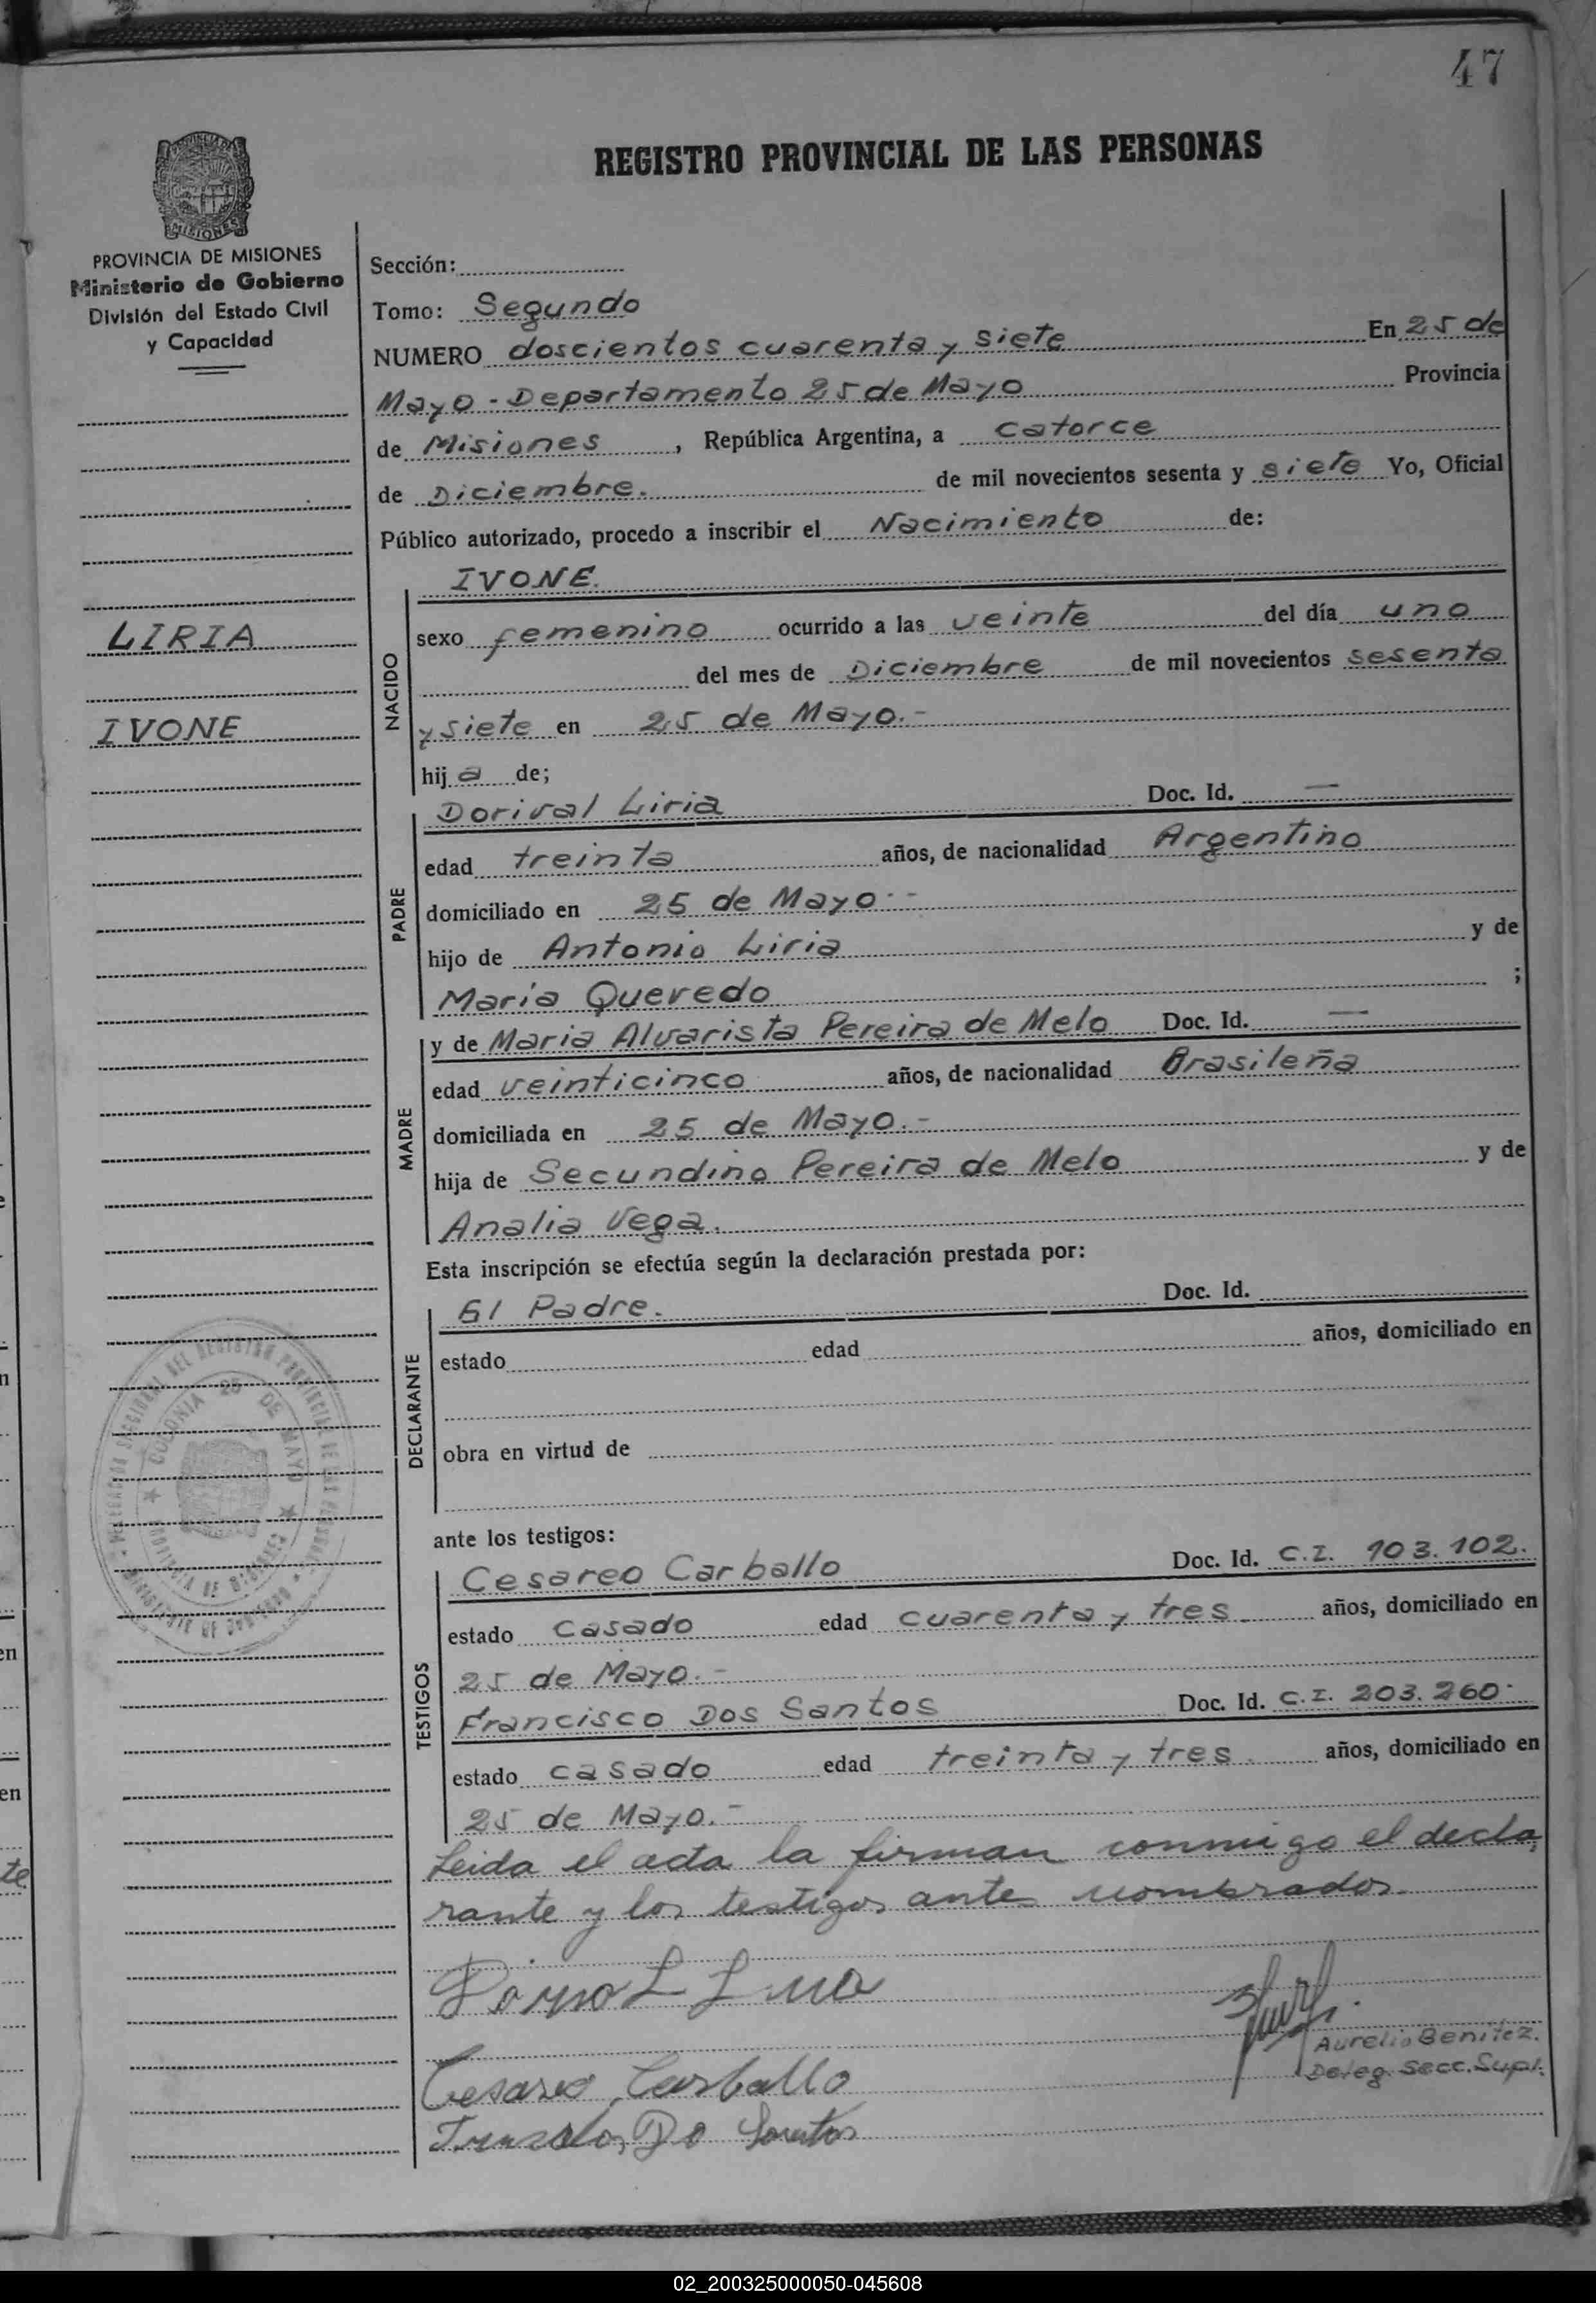 47
REGISTRO PROVINCIAL DE LAS PERSONAS
MISIONES
PROVINCIA DE MISIONES
Ministerio de Gobierno
División del Estado Civil
y Capacidad
LIRIA
IVONE
Sección:
Tomo: Segundo
NUMERO doscientos cuarenta y siete En 25 de
Mayo - Departamento 25 de Mayo Provincia
de Misiones , República Argentina, a catorce
de Diciembre. de mil novecientos sesenta y siete Yo, Oficial
Público autorizado, procedo a inscribir el Nacimiento de:
IVONE.
NACIDO
sexo femenino ocurrido a las veinte del día uno
del mes de Diciembre de mil novecientos sesenta
y siete en 25 de Mayo.-
hij a de;
PADRE
Dorival Liria Doc. Id. —
edad treinta años, de nacionalidad Argentino
domiciliado en 25 de Mayo.-
hijo de Antonio Liria y de
Maria Quevedo ;
MADRE
y de Maria Alvarista Pereira de Melo Doc. Id. —
edad veinticinco años, de nacionalidad Brasileña
domiciliada en 25 de Mayo.-
hija de Secundino Pereira de Melo y de
Analia Vega.
Esta inscripción se efectúa según la declaración prestada por:
DECLARANTE
El Padre. Doc. Id.
estado edad años, domiciliado en
obra en virtud de
COLONIA 25 DE MAYO
ante los testigos:
TESTIGOS
Cesareo Carballo Doc. Id. C.I. 103.102.
estado casado edad cuarenta y tres años, domiciliado en
25 de Mayo.-
Francisco Dos Santos Doc. Id. C.I. 203.260.
estado casado edad treinta y tres años, domiciliado en
25 de Mayo.-
Leida el acta la firman conmigo el decla
rante y los testigos antes nombrados.
Cesareo Carballo
Aurelio Benitez.
Deleg. Secc. Supl.
Do Santos
02_200325000050-045608